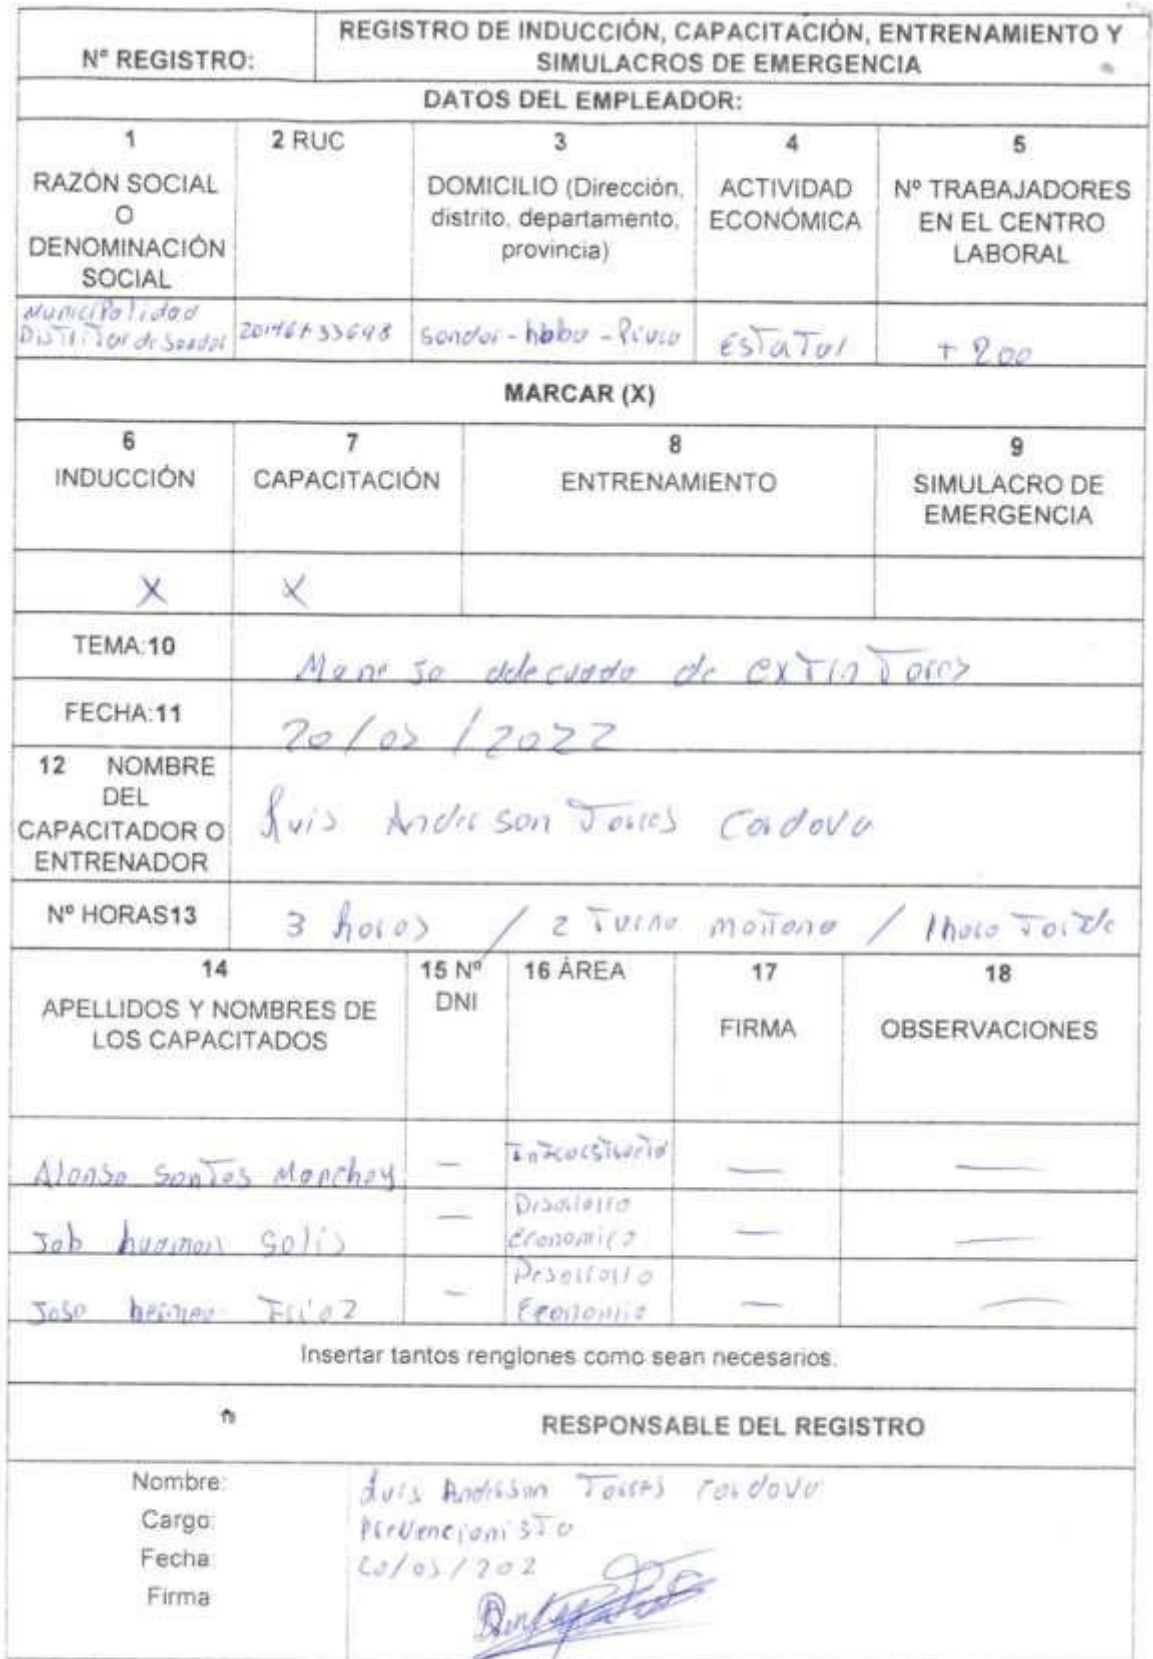 Nº REGISTRO:
REGISTRO DE INDUCCIÓN, CAPACITACIÓN, ENTRENAMIENTO Y
SIMULACROS DE EMERGENCIA
DATOS DEL EMPLEADOR:
1
RAZÓN SOCIAL
O
DENOMINACIÓN
SOCIAL
2 RUC
3
DOMICILIO (Dirección,
distrito, departamento,
provincia)
4
ACTIVIDAD
ECONÓMICA
5
Nº TRABAJADORES
EN EL CENTRO
LABORAL
Municipalidad
Distrital de Sondor
Sondor - - Piura
Estatal
+ 200
MARCAR (X)
6
INDUCCIÓN
7
CAPACITACIÓN
8
ENTRENAMIENTO
9
SIMULACRO DE
EMERGENCIA
X
X
TEMA:10
Manejo adecuado de extintores
FECHA:11
20/05/2022
12 NOMBRE
DEL
CAPACITADOR O
ENTRENADOR
Luis Anderson Torres Cordova
Nº HORAS13
3 horas / 2 Turno mañana / 1 hora Tarde
14
APELLIDOS Y NOMBRES DE
LOS CAPACITADOS
15 Nº
DNI
16 ÁREA
17
FIRMA
18
OBSERVACIONES
Alonso Santos Manchay — — —
Job huaman Solis — Desarrollo Economico — —
Jose — Desarrollo Economico — —
Insertar tantos renglones como sean necesarios.
RESPONSABLE DEL REGISTRO
Nombre: Luis Anderson Torres Cordova
Cargo: Prevencionista
Fecha 20/05/202
Firma